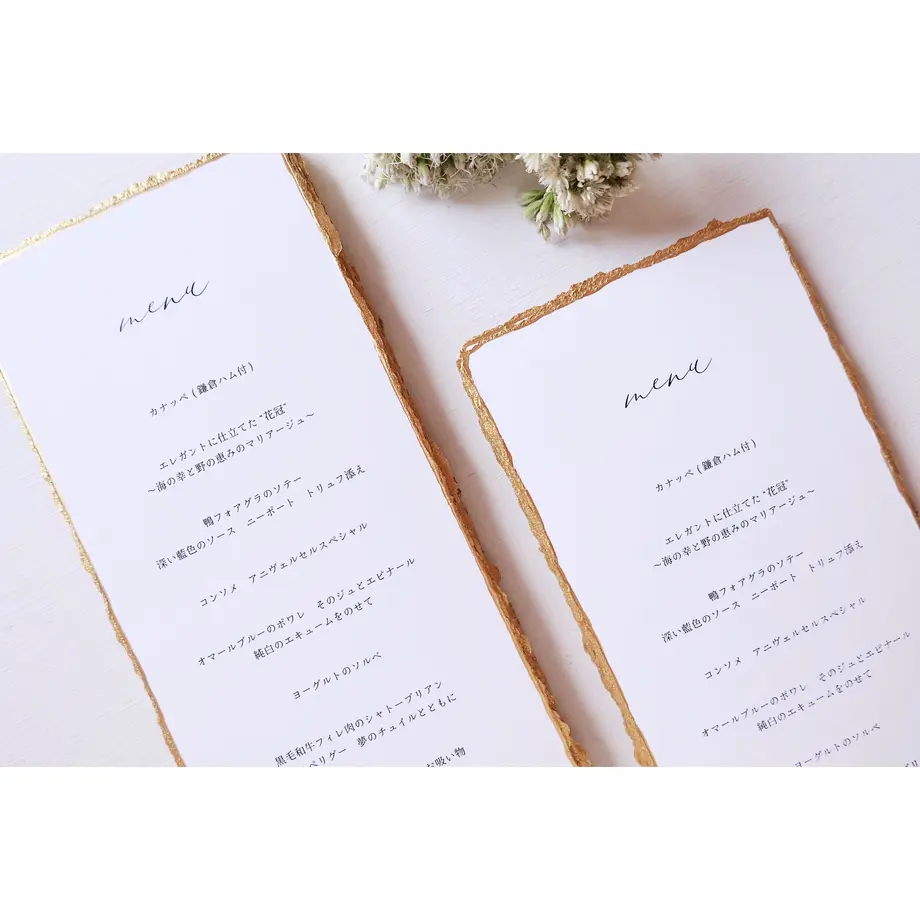 menu
カナッペ (鎌倉ハム付)
エレガントに仕立てた “花冠”
～海の幸と野の恵みのマリアージュ～
鴨フォアグラのソテー
深い藍色のソース　ニーポート　トリュフ添え
コンソメ　アニヴェルセルスペシャル
オマールブルーのポワレ　そのジュとエピナール
純白のエキュームをのせて
ヨーグルトのソルベ
黒毛和牛フィレ肉のシャトーブリアン
ペリグー　夢のチュイルとともに
お吸い物
menu
カナッペ (鎌倉ハム付)
エレガントに仕立てた “花冠”
～海の幸と野の恵みのマリアージュ～
鴨フォアグラのソテー
深い藍色のソース　ニーポート　トリュフ添え
コンソメ　アニヴェルセルスペシャル
オマールブルーのポワレ　そのジュとエピナール
純白のエキュームをのせて
ヨーグルトのソルベ